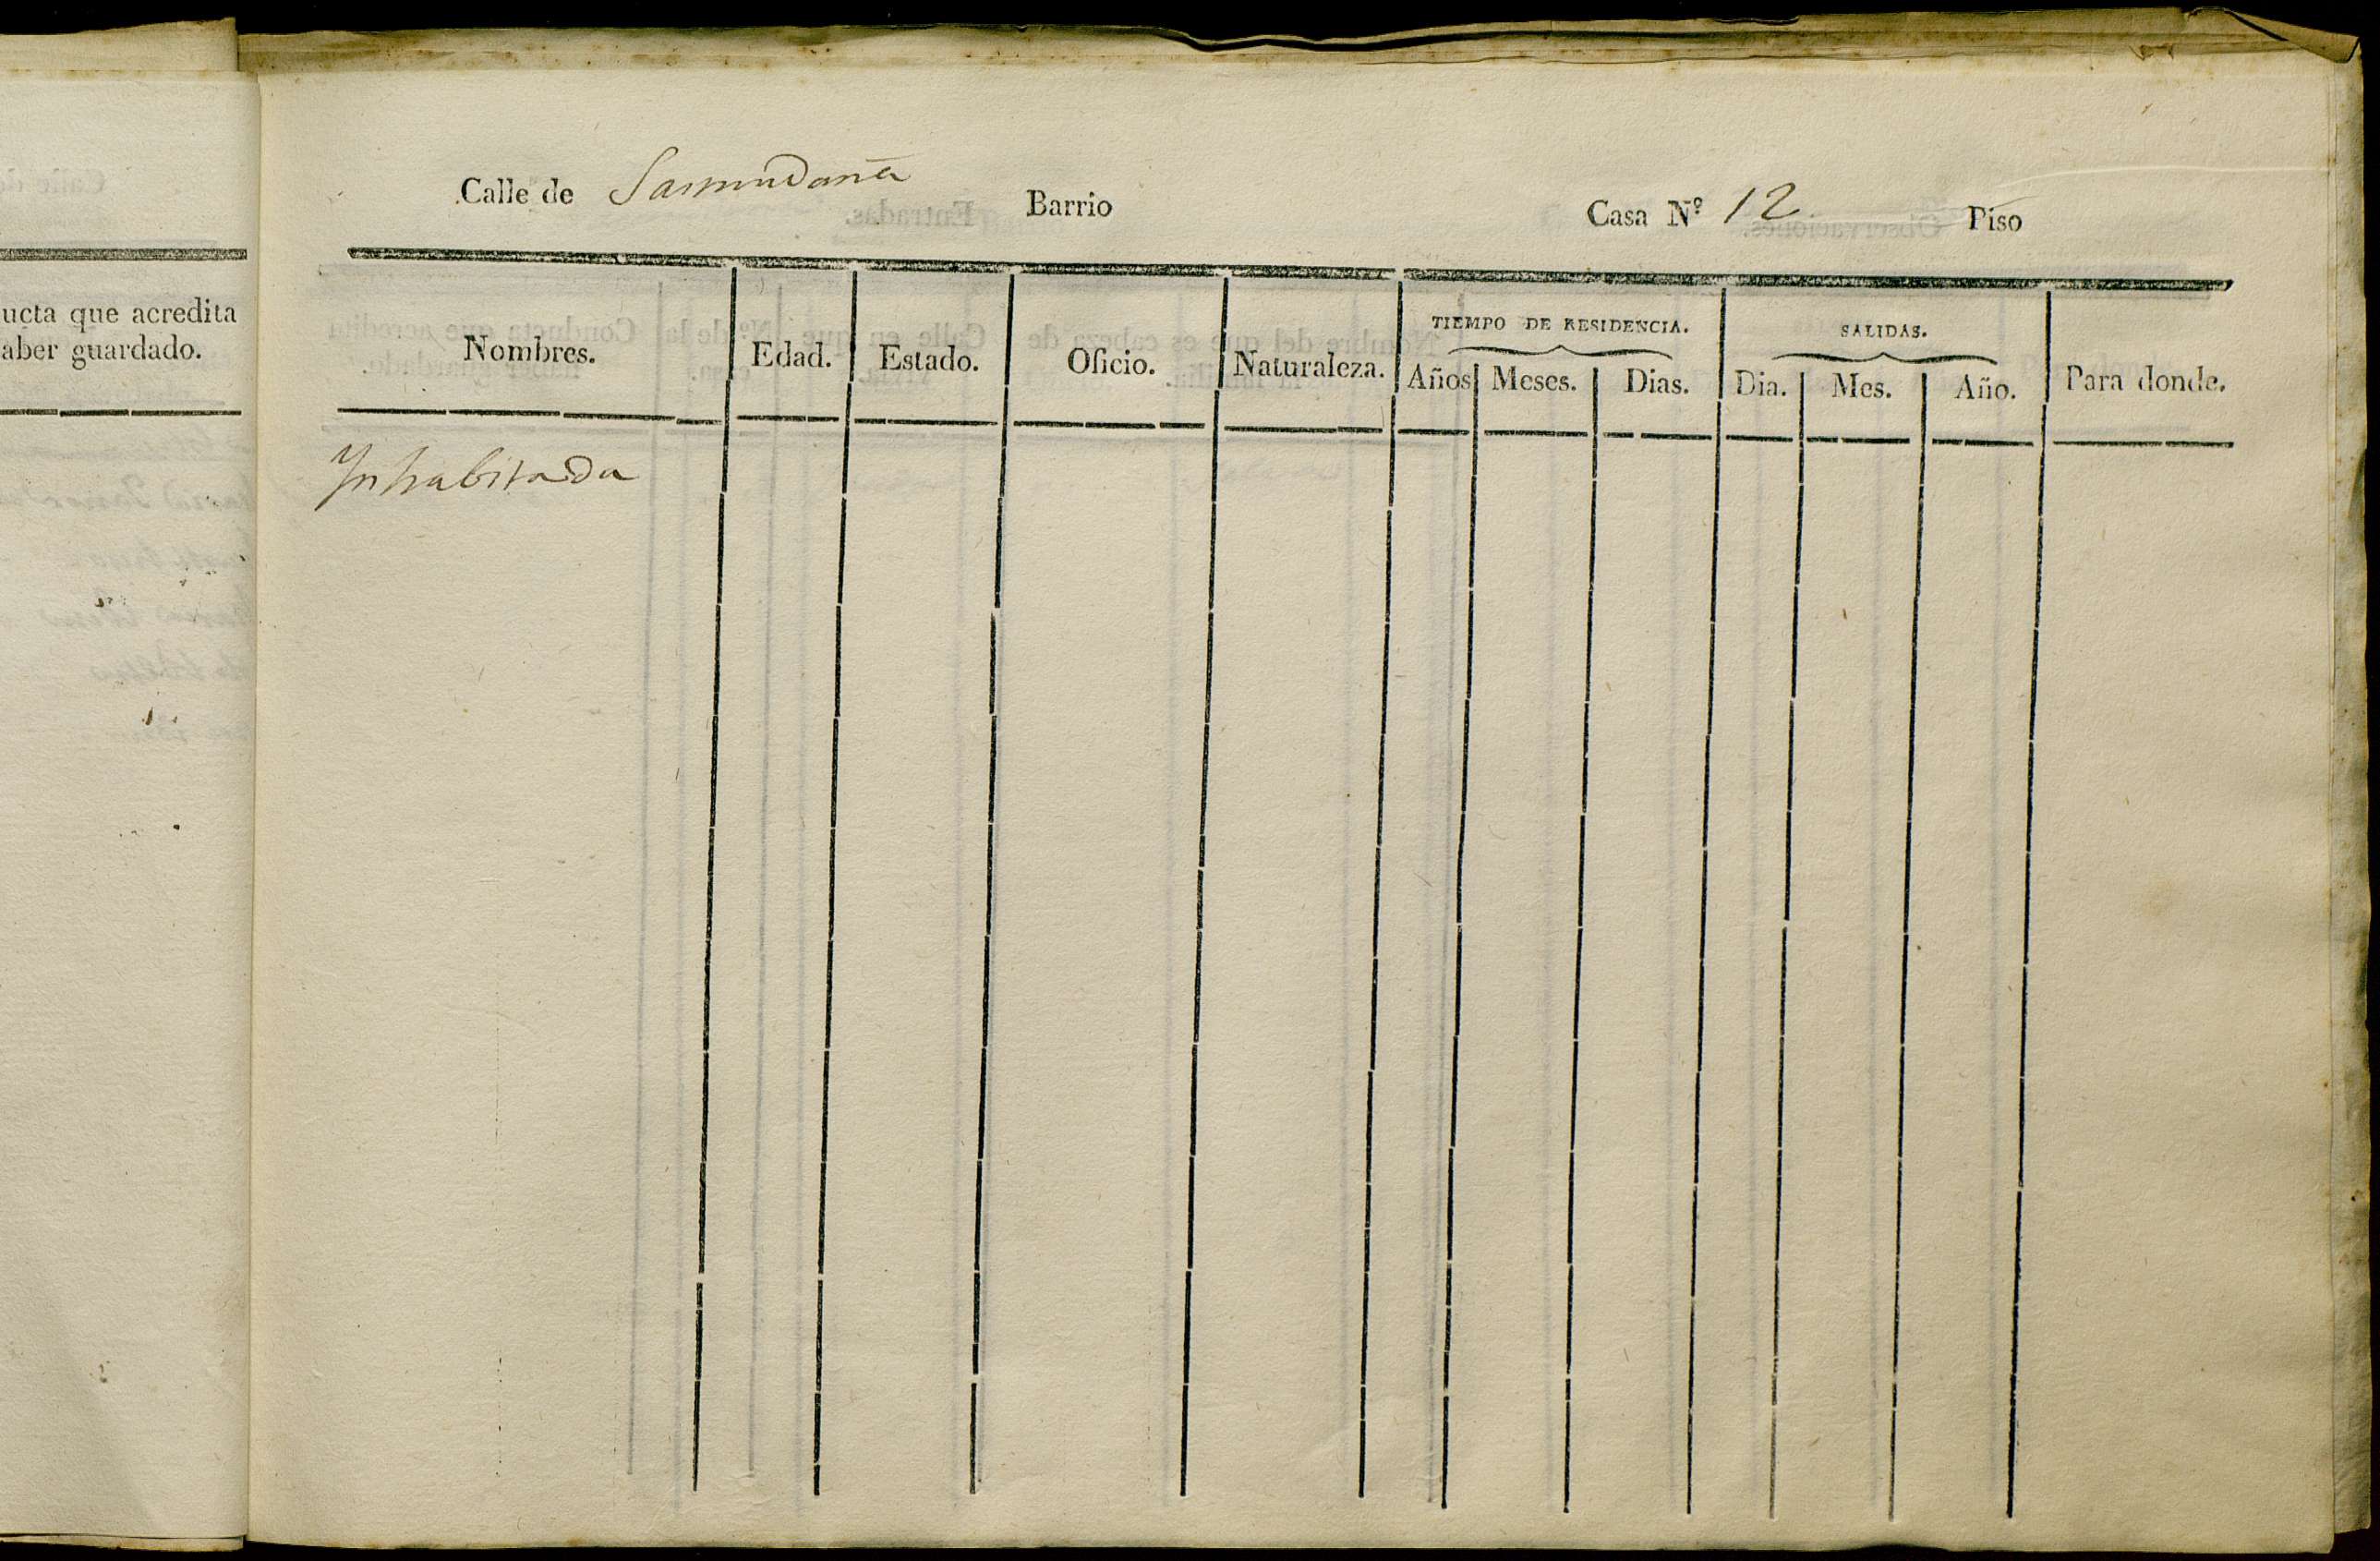 ucta que acredita
aber guardado.
Calle de Samudana Barrio Casa Nº 12 Piso
Nombres. Edad. Estado. Oficio. Naturaleza. TIEMPO DE RESIDENCIA. SALIDAS. Para donde.
Años Meses. Dias. Dia. Mes. Año.
Inhabitada